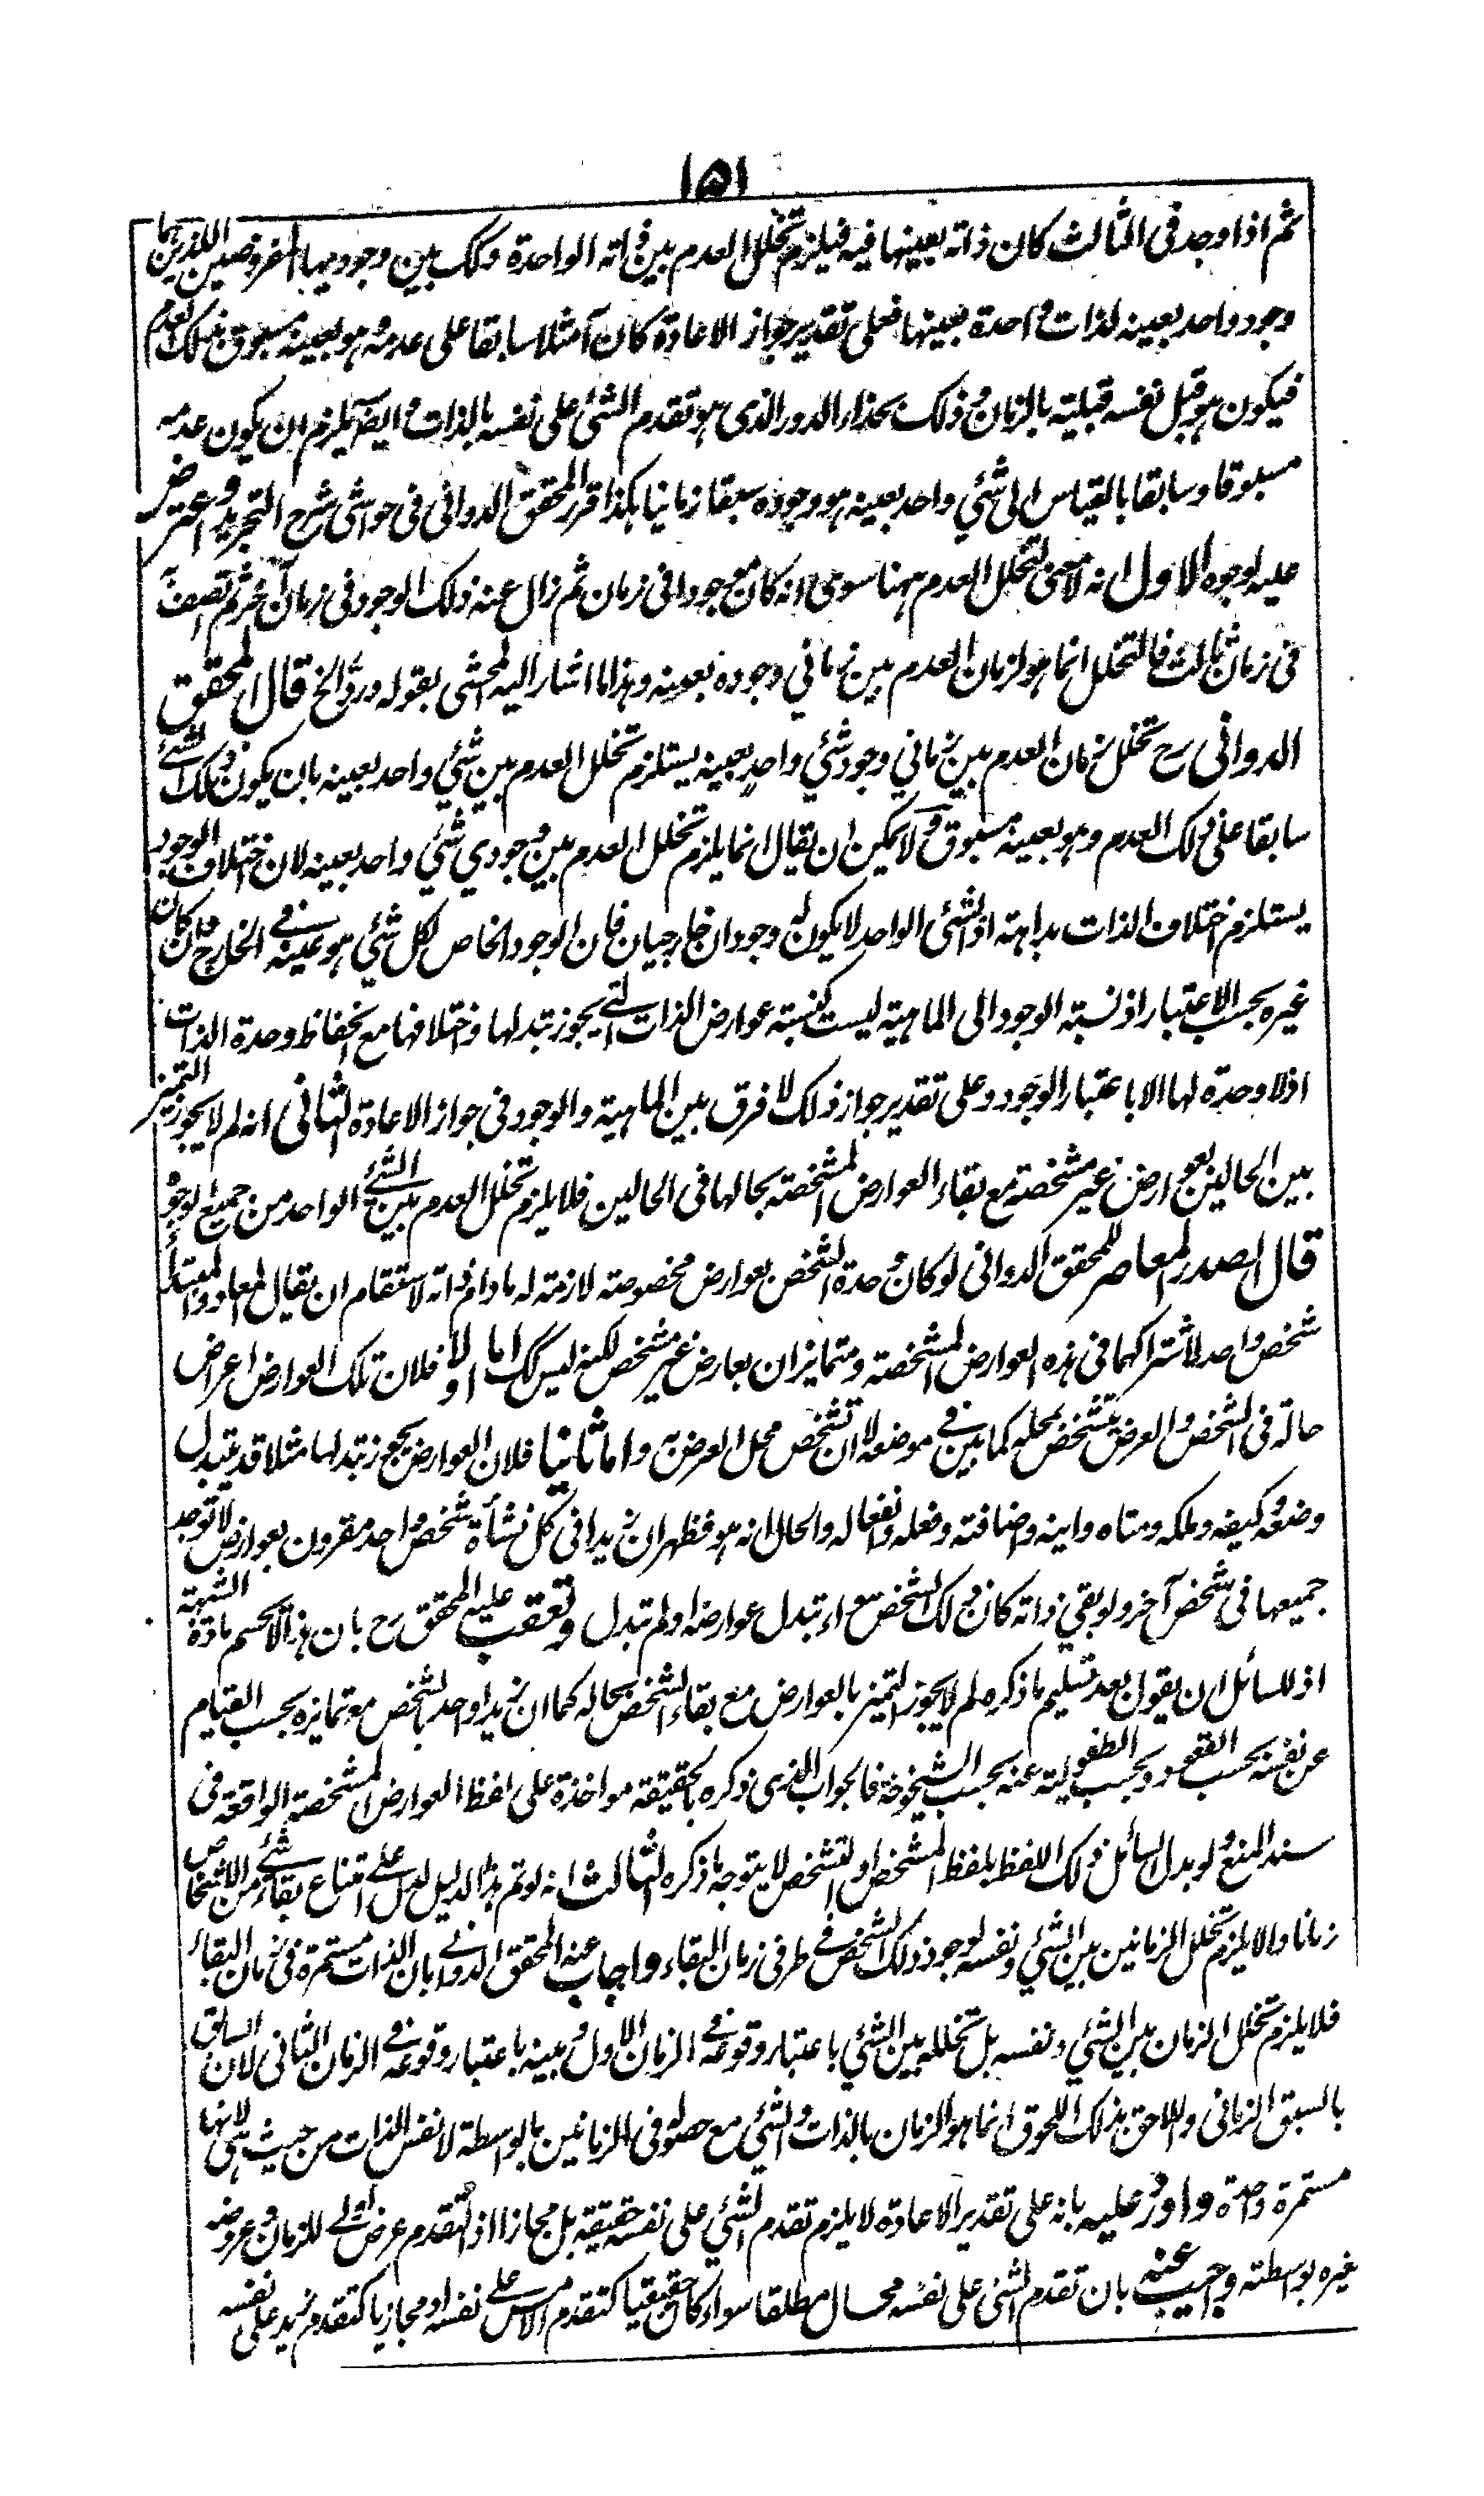 ١٥١
ثم اذا وجد فى الثالث كان ذاته بعينها فيه فيلزم تخلل العدم بين ذاته الواحدة وكك بين وجوديها المفروضين اللذين هما
وجود واحد بعينه لذات واحدة بعينها فعلى تقدير جواز الاعادة كان آ مثلا سابقا على عدمه وهو بعينه مسبوق بذلك العدم
فيكون هو قبل نفسه قبلية بالزمان وذلك بحذاء الدور الذى هو تقدم الشئ على نفسه بالذات وايضا يلزم ان يكون عدمه
مسبوقا وسابقا بالقياس الى شئي واحد بعينه هو وجوده سبقا زمانيا هكذا قرر المحقق الدوانى فى حواشى شرح التجريد واعترض
عليه لوجوه الاول انه لا معنى لتخلل العدم ههنا سوى انه كان موجودا فى زمان ثم زال عنه ذلك الوجود فى زمان آخر ثم اتصف به
فى زمان ثالث فالتخلل انما هو لزمان العدم بين زماني وجوده بعينه وهذا ما اشار اليه المحشى بقوله ورد الخ قال المحقق
الدوانى رح تخلل زمان العدم بين زماني وجود شئي واحد بعينه يستلزم تخلل العدم بين شئي واحد بعينه بان يكون ذلك الشئ
سابقا على ذلك العدم وهو بعينه مسبوق ولا يمكن ان يقال انما يلزم تخلل العدم بين وجودي شئي واحد بعينه لان اختلاف الوجود
يستلزم اختلاف الذات بداهة اذ الشئ الواحد لا يكون له وجودان خارجيان فان الوجود الخاص لكل شئي هو عينه فى الخارج وان كان
غيره بحسب الاعتبار اذ نسبة الوجود الى الماهية ليست كنسبة عوارض الذات التى يجوز تبدلها واختلافها مع انحفاظ وحدة الذات
اذ لا وحدة لها الا باعتبار الوجود وعلى تقدير جواز ذلك لا فرق بين الماهية والوجود فى جواز الاعادة الثانى انه لم لا يجوز التميز
بين الحالين بعوارض غير مشخصة مع بقاء العوارض المشخصة بحالها فى الحالين فلا يلزم تخلل العدم بين الشئ الواحد من جميع الوجوه
قال الصدر المعاصر للمحقق الدوانى لو كان وحدة الشخص بعوارض مخصوصة لازمة له ما دام ذاته لاستقام ان يقال المعاد والمبتدأ
شخص واحد لاشتراكهما فى هذه العوارض المشخصة ومتمايزان بعارض غير مشخص لكنه ليس كك اما اولا فلان تلك العوارض اعراض
حالة فى الشخص والعرض يتشخص بمحله كما بين فى موضعه لا ان تشخص محل العرض به واما ثانيا فلان العوارض يجوز تبدلها مثلا قد يتبدل
وضعه وكيفه وملكه ومتاه واينه واضافته وفعله وانفعاله والحال انه هو فظهر ان زيدا فى كل نشأة شخص واحد مقرون بعوارض لا توجد
جميعها فى شخص آخر ولو بقي ذاته كان ذلك الشخص سواء تبدل عوارضه او لم تبدل وتعقب عليه المحقق رح بان هذا لا يحسم مادة الشبهة
اذ للسائل ان يقول بعد تسليم ما ذكره لم لا يجوز التميز بالعوارض مع بقاء الشخص بحاله كما ان زيدا واحد بالشخص مع تمايزه بحسب القيام
عن نفسه بحسب القعود وبحسب الطفولية عنه بحسب الشيخوخة فالجواب الذى ذكره بالحقيقة مواخذة على لفظ العوارض المشخصة الواقعة فى
سند المنع ولو بدل السائل ذلك اللفظ بلفظ المشخص او التشخص لا يتوجه ما ذكره الثالث انه لو تم هذا الدليل لدل على امتناع بقاء شئ من الاشخاص
زمانا والا يلزم تخلل الزمانين بين الشئي ونفسه لوجود ذلك الشخص فى طرفى زمان البقاء واجاب عنه المحقق الدوانى بان الذات مستمرة فى زمان البقاء
فلا يلزم تخلل الزمان بين الشئي ونفسه بل تخلله بين الشئي باعتبار وقوعه فى الزمان الاول وبينه باعتبار وقوعه فى الزمان الثانى لان السابق
بالسبق الزمانى واللاحق بذلك اللحوق انما هو الزمان بالذات والشئي مع حصوله فى الزمانين بالواسطة لا نفس الذات من حيث هى لانها
مستمرة واحدة واورد عليه بانه على تقدير الاعادة لا يلزم تقدم الشئي على نفسه حقيقة بل مجازا اذ التقدم عرض اولى للزمان وعروضه
غيره بواسطته واجيب عنه بان تقدم الشئ على نفسه محال مطلقا سواء كان حقيقيا كتقدم الامس على نفسه او مجازيا كتقدم زيد على نفسه